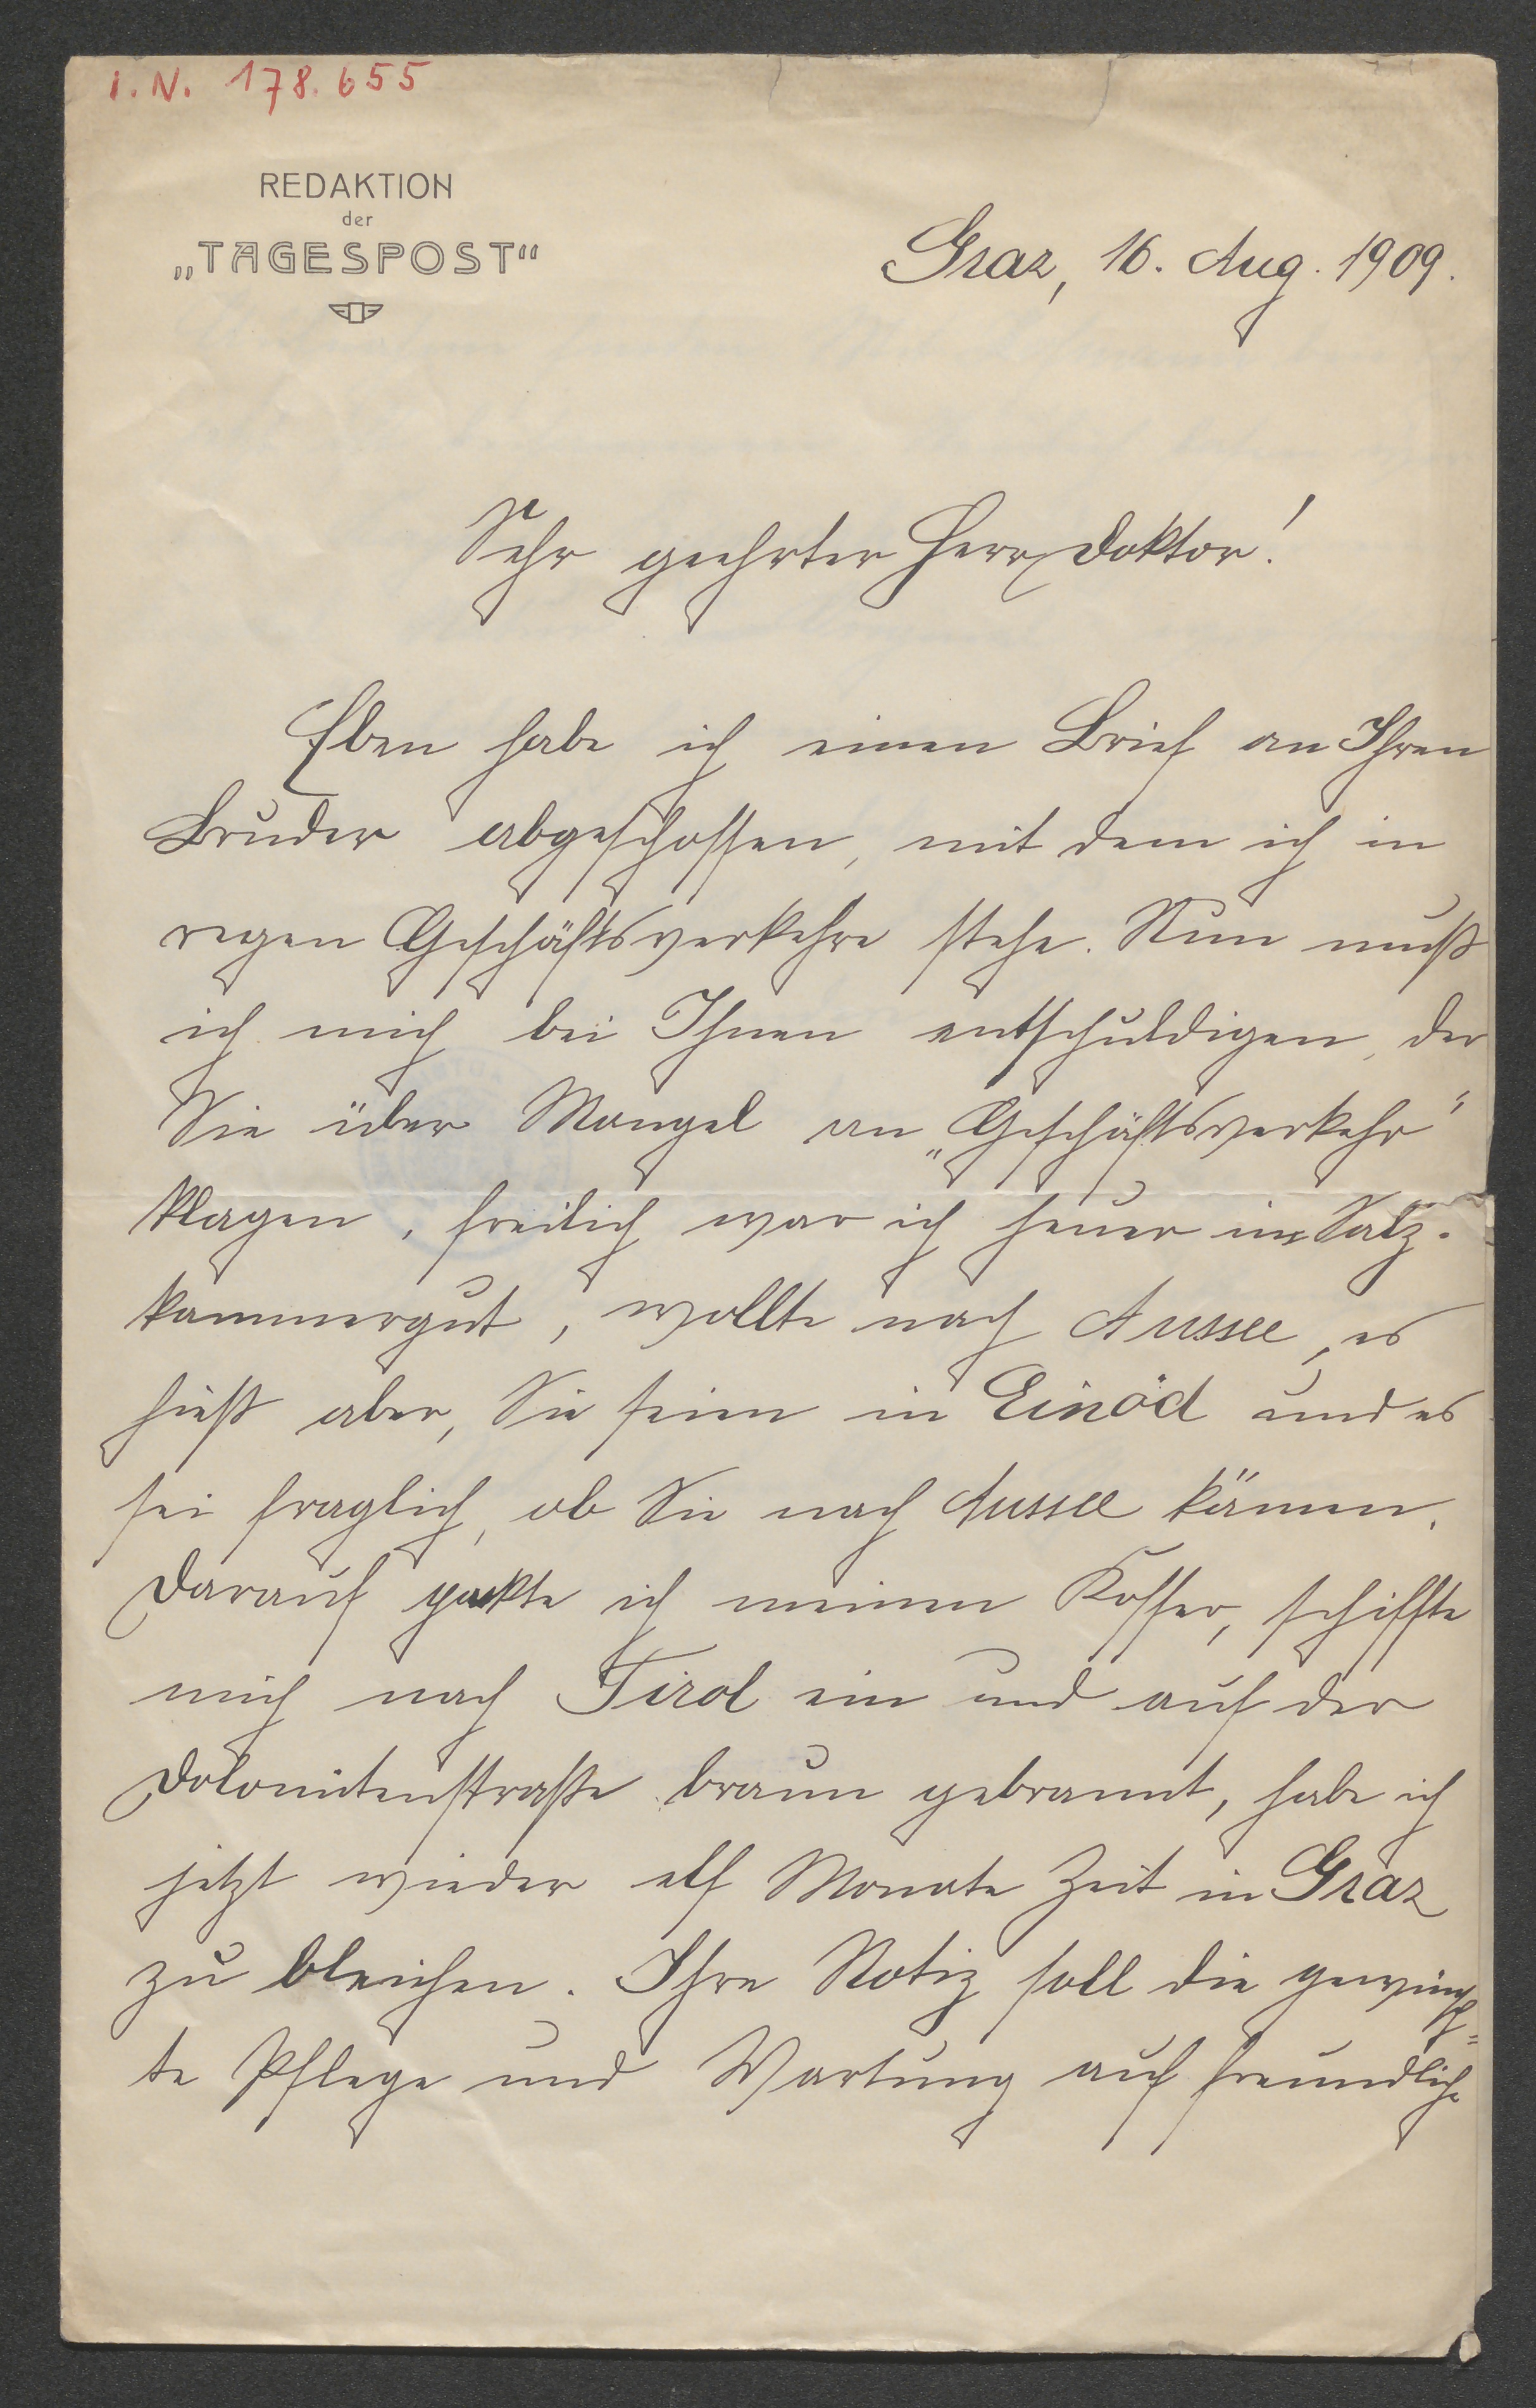 I.N. 178.655
REDAKTION
der
„TAGESPOST“
Graz, 16. Aug. 1909.
Sehr geehrter Herr Doktor!
Eben habe ich einen Brief an Ihren
Bruder abgeschossen, mit dem ich in
regen Geschäftsverkehre stehe. Nun muß
ich mich bei Ihnen entschuldigen, der
Sie über Mangel an „Geschäftsverkehr“
klagen, freilich war ich heuer im Salz-
kammergut, wollte nach Aussee, es
hieß aber, Sie seien in Einöd und es
sei fraglich, ob Sie nach Aussee kämen.
Darauf packte ich meinen Koffer, schiffte
mich nach Tirol ein und auf der
Dolomitenstraße braun gebrannt, habe ich
jetzt wieder elf Monate Zeit in Graz
zu bleichen. Ihre Notiz soll die gewünsch=
te Pflege und Wartung auf freundliche